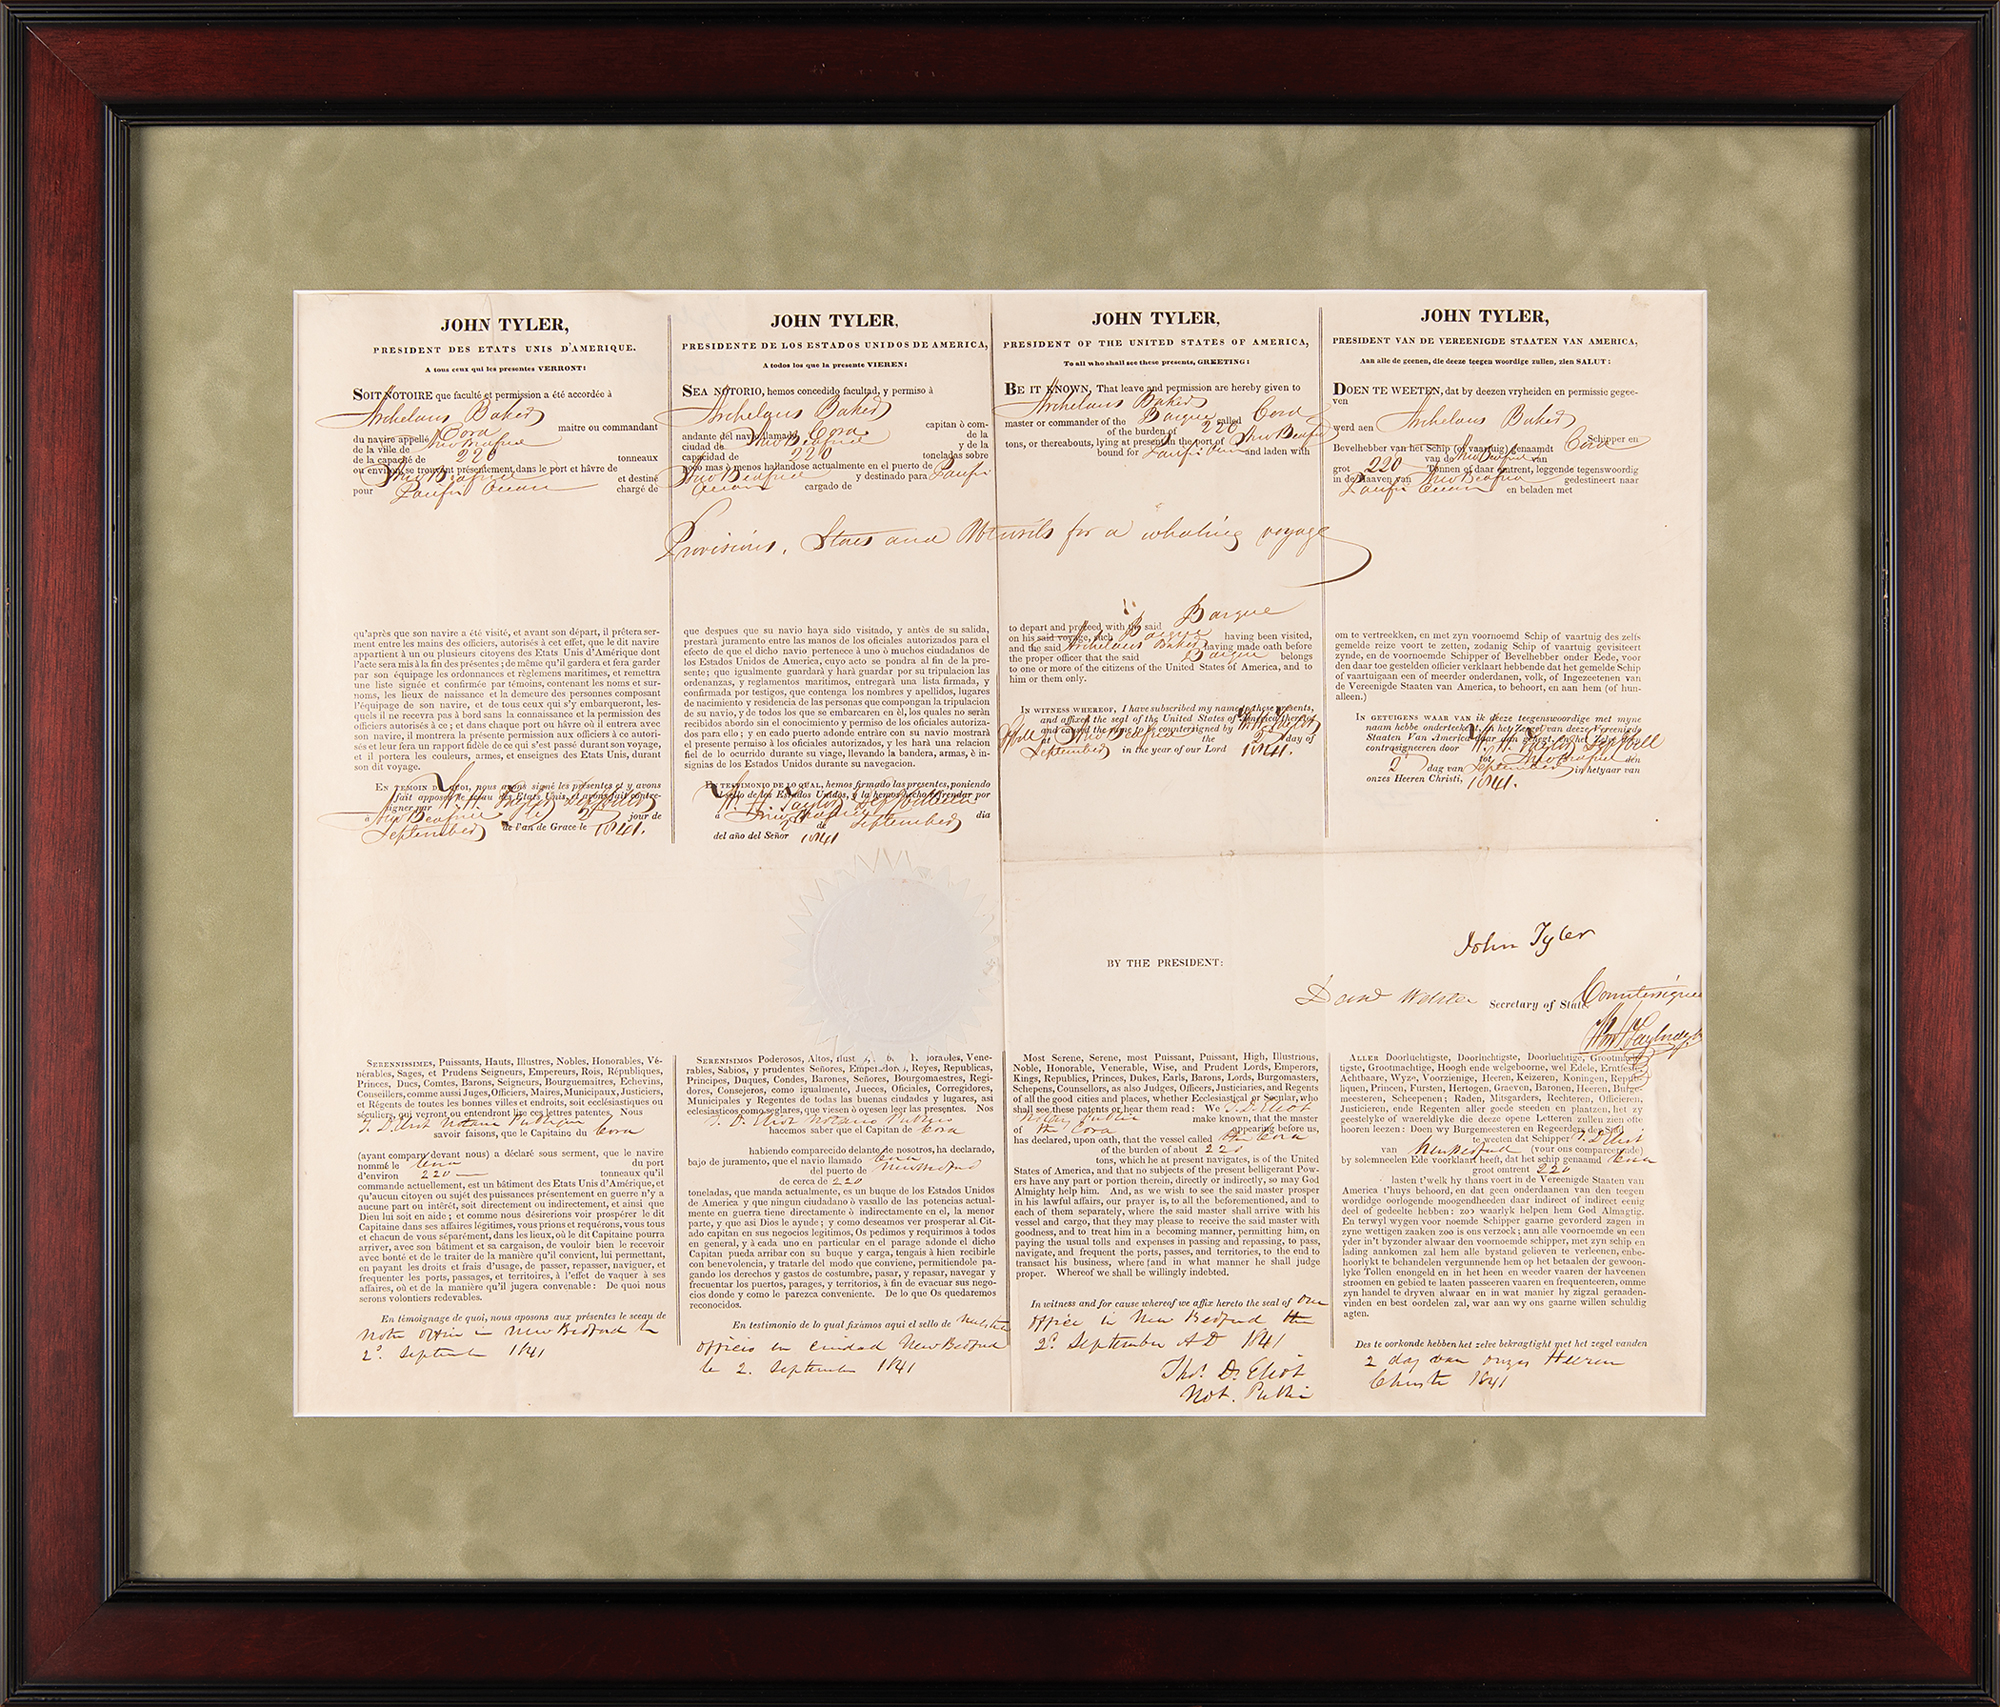 JOHN TYLER,
PRESIDENT DES ETATS UNIS D'AMERIQUE.
A tous ceux qui les presentes VERRONT:
SOIT NOTOIRE que faculté et permission a été accordée à
Archelaus Baker
maitre ou commandant
du navire appellé Cora
de la ville de New Bedford
de la capacité de 220 tonneaux
ou environ, se trouvant présentement dans le port et hâvre de
New Bedford et destiné
pour Pacific Ocean chargé de
qu'après que son navire a été visité, et avant son départ, il prêtera ser-
ment entre les mains des officiers, autorisés à cet effet, que le dit navire
appartient à un ou plusieurs citoyens des Etats Unis d'Amérique dont
l'acte sera mis à la fin des présentes; de même qu'il gardera et fera garder
par son équipage les ordonnances et règlemens maritimes, et remettra
une liste signée et confirmée par témoins, contenant les noms et sur-
noms, les lieux de naissance et la demeure des personnes composant
l'équipage de son navire, et de tous ceux qui s'y embarqueront, les-
quels il ne recevra pas à bord sans la connaissance et la permission des
officiers autorisés à ce; et dans chaque port ou hâvre où il entrera avec
son navire, il montrera la présente permission aux officiers à ce autori-
sés et leur fera un rapport fidèle de ce qui s'est passé durant son voyage,
et il portera les couleurs, armes, et enseignes des Etats Unis, durant
son dit voyage.
EN TEMOIN DE QUOI, nous avons signé les présentes et y avons
fait apposer le sceau des Etats Unis, et avons fait contre-
signer par
à New Bedford le 2d jour de
September de l'an de Grace le 1841.
JOHN TYLER,
PRESIDENTE DE LOS ESTADOS UNIDOS DE AMERICA,
A todos los que la presente VIEREN:
SEA NOTORIO, hemos concedido facultad, y permiso à
Archelaus Baker
capitan ò com-
andante del navio llamado Cora de la
ciudad de New Bedford y de la
capacidad de 220 toneladas sobre
poco mas ò menos hallandose actualmente en el puerto de
New Bedford y destinado para Pacific
Ocean cargado de
que despues que su navio haya sido visitado, y antès de su salida,
prestarà juramento entre las manos de los oficiales autorizados para el
efecto de que el dicho navio pertenece à uno ò muchos ciudadanos de
los Estados Unidos de America, cuyo acto se pondra al fin de la pre-
sente; que igualmente guardarà y harà guardar por su tripulacion las
ordenanzas, y reglamentos maritimos, entregarà una lista firmada, y
confirmada por testigos, que contenga los nombres y apellidos, lugares
de nacimiento y residencia de las personas que compongan la tripulacion
de su navio, y de todos los que se embarcaren en èl, los quales no seràn
recibidos abordo sin el conocimiento y permiso de los oficiales autoriza-
dos para ello; y en cado puerto adonde entràre con su navio mostrarà
el presente permiso à los oficiales autorizados, y les harà una relacion
fiel de lo ocurrido durante su viage, llevando la bandera, armas, è in-
signias de los Estados Unidos durante su navegacion.
EN TESTIMONIO DE LO QUAL, hemos firmado las presentes, poniendo
el sello de los Estados Unidos, y la hemos hecho refrendar por
W. H. Taylor
à New Bedford dia
2 de September
del año del Señor 1841
JOHN TYLER,
PRESIDENT OF THE UNITED STATES OF AMERICA,
To all who shall see these presents, GREETING:
BE IT KNOWN, That leave and permission are hereby given to
Archelaus Baker
master or commander of the Barque called Cora
of the burden of 220
tons, or thereabouts, lying at present in the port of New Bedford
bound for Pacific Ocean and laden with
Provisions, Stores and Utensils for a whaling voyage
to depart and proceed with the said Barque
on his said voyage, such Barque having been visited,
and the said Archelaus Baker having made oath before
the proper officer that the said Barque belongs
to one or more of the citizens of the United States of America, and to
him or them only.
IN WITNESS WHEREOF, I have subscribed my name to these presents,
and affixed the seal of the United States of America thereto,
and caused the same to be countersigned by
at New Bedford the 2d day of
September in the year of our Lord 1841.
JOHN TYLER,
PRESIDENT VAN DE VEREENIGDE STAATEN VAN AMERICA,
Aan alle de geenen, die deeze teegen woordige zullen, zien SALUT:
DOEN TE WEETEN, dat by deezen vryheiden en permissie gegee-
ven
werd aen Archelaus Baker
Schipper en
Bevelhebber van het Schip (of vaartuig) genaamdt Cora
van de New Bedford van
grot 220 Tonnen of daar omtrent, leggende tegenswoordig
in de Haaven van New Bedford gedestineert naar
Pacific Ocean en beladen met
om te vertreekken, en met zyn voornoemd Schip of vaartuig des zelfs
gemelde reize voort te zetten, zodanig Schip of vaartuig gevisiteert
zynde, en de voornoemde Schipper of Bevelhebber onder Eede, voor
den daar toe gestelden officier verklaart hebbende dat het gemelde Schip
of vaartuigaan een of meerder onderdanen, volk, of Ingezeetenen van
de Vereenigde Staaten van America, to behoort, en aan hem (of hun-
alleen.)
IN GETUIGENS WAAR VAN ik deeze teegenswoordige met myne
naam hebbe onderteekent, en het Zegel van deeze Vereenigde
Staaten Van America daar aan gehegt, en het Zelve doen
contrasigneeren door
tot New Bedford den
2d dag van September in hetyaar van
onzes Heeren Christi, 1841.
John Tyler
BY THE PRESIDENT:
Danl Webster Secretary of State.
Countersigned
SERENNISSIMES, Puissants, Hauts, Illustres, Nobles, Honorables, Vé-
nérables, Sages, et Prudens Seigneurs, Empereurs, Rois, Républiques,
Princes, Ducs, Comtes, Barons, Seigneurs, Bourguemaitres, Echevins,
Conseillers, comme aussi Juges, Officiers, Maires, Municipaux, Justiciers,
et Régents de toutes les bonnes villes et endroits, soit ecclésiastiques ou
séculiers, qui verront ou entendront lire ces lettres patentes. Nous
T. D. Eliot Notaire Publique
savoir faisons, que le Capitaine du Cora
(ayant comparu devant nous) a déclaré sous serment, que le navire
nommé le Cora du port
d'environ 220 tonneaux qu'il
commande actuellement, est un bâtiment des Etats Unis d'Amérique, et
qu'aucun citoyen ou sujét des puissances présentement en guerre n'y a
aucune part ou intérêt, soit directement ou indirectement, et ainsi que
Dieu lui soit en aide; et comme nous désirerions voir prospérer le dit
Capitaine dans ses affaires légitimes, vous prions et requérons, vous tous
et chacun de vous séparément, dans les lieux, où le dit Capitaine pourra
arriver, avec son bâtiment et sa cargaison, de vouloir bien le recevoir
avec bonté et de le traiter de la manière qu'il convient, lui permettant,
en payant les droits et frais d'usage, de passer, repasser, naviguer, et
frequenter les ports, passages, et territoires, à l'effet de vaquer à ses
affaires, où et de la manière qu'il jugera convenable: De quoi nous
serons volontiers redevables.
En témoignage de quoi, nous aposons aux présentes le sceau de
Notre Office in New Bedford le
2d. September 1841
SERENISIMOS Poderosos, Altos,
rables, Sabios, y prudentes Señores, Reyes, Republicas,
Principes, Duques, Condes, Barones, Señores, Bourgomaestres, Regi-
dores, Consejeros, como igualmente, Jueces, Oficiales, Corregidores,
Municipales y Regentes de todas las buenas ciudades y lugares, asi
eclesiasticos como seglares, que viesen ò oyesen leer las presentes. Nos
T. D. Eliot Notario Publico
hacemos saber que el Capitan de Cora
habiendo comparecido delante de nosotros, ha declarado,
bajo de juramento, que el navio llamado Cora
del puerto de New Bedford
de cerca de 220
toneladas, que manda actualmente, es un buque de los Estados Unidos
de America y que ningun ciudadano ò vasallo de las potencias actual-
mente en guerra tiene directamente ò indirectamente en el, la menor
parte, y que asi Dios le ayude; y como deseamos ver prosperar al Cit-
ado capitan en sus negocios legitimos, Os pedimos y requirimos à todos
en general, y à cada uno en particular en el parage adonde el dicho
Capitan pueda arribar con su buque y carga, tengais à hien recibirle
con benevolencia, y tratarle del modo que conviene, permitiendole pa-
gando los derechos y gastos de costumbre, pasar, y repasar, navegar y
frecuentar los puertos, parages, y territorios, à fin de evacuar sus nego-
cios donde y como le parezca conveniente. De lo que Os quedaremos
reconocidos.
En testimonio de lo qual fixàmos aqui el sello de nuestro
officio en ciudad New Bedford
le 2. September 1841
Most Serene, Serene, most Puissant, Puissant, High, Illustrious,
Noble, Honorable, Venerable, Wise, and Prudent Lords, Emperors,
Kings, Republics, Princes, Dukes, Earls, Barons, Lords, Burgomasters,
Schepens, Counsellors, as also Judges, Officers, Justiciaries, and Regents
of all the good cities and places, whether Ecclesiastical or Secular, who
shall see these patents or hear them read: We T. D. Eliot
Notary Public make known, that the master
of the Cora appearing before us,
has declared, upon oath, that the vessel called the Cora
of the burden of about 220
tons, which he at present navigates, is of the United
States of America, and that no subjects of the present belligerant Pow-
ers have any part or portion therein, directly or indirectly, so may God
Almighty help him. And, as we wish to see the said master prosper
in his lawful affairs, our prayer is, to all the beforementioned, and to
each of them separately, where the said master shall arrive with his
vessel and cargo, that they may please to receive the said master with
goodness, and to treat him in a becoming manner, permitting him, on
paying the usual tolls and expenses in passing and repassing, to pass,
navigate, and frequent the ports, passes, and territories, to the end to
transact his business, where and in what manner he shall judge
proper. Whereof we shall be willingly indebted.
In witness and for cause whereof we affix hereto the seal of our
office in New Bedford the
2d. September AD 1841
Thos. D. Eliot
Not. Public
ALLER Doorluchtigste, Doorluchtigste, Doorluchtige, Grootmach-
tigste, Grootmachtige, Hoogh ende welgeboorne, wel Edele, Erntfeste,
Achtbaare, Wyze, Voorzienige, Heeren, Keizeren, Koningen, Repub-
liquen, Princen, Fursten, Hertogen, Graeven, Baronen, Heeren, Burge-
meesteren, Scheepenen; Raden, Mitsgarders, Rechteren, Officieren,
Justicieren, ende Regenten aller goede steeden en plaatzen, het zy
geestelyke of waereldlyke die deeze opene Letteren zullen zien ofte
hooren leezen: Doen wy Burgemeesteren en Regeerders der Stad
te weeten dat Schipper T. D. Eliot
van New Bedford (voor ons compareerende)
by solemneelen Ede voorklaart heeft, dat het schip genaamd Cora
groot omtrent 220
lasten t'welk hy thans voert in de Vereenigde Staaten van
America t'huys behoord, en dat geen onderdaanen van den teegen
wordidge oorlogende moogendheeden daar indirect of indirect eenig
deel of gedeelte hebben: zoo waarlyk helpen hem God Almagtig.
En terwyl wygen voor noemde Schipper gaarne gevorderd zagen in
zyne wettigen zaaken zoo is ons verzoek; ann alle voornoemde en een
yder in't byzonder alwaar den voornoemde schipper, met zyn schip en
lading aankomen zal hem alle bystand gelieven te verleenen, enbe-
hoorlykt te behandelen vergunnende hem op het betaalen der gewoon-
lyke Tollen enongeld en in het heen en weeder vaaren der haveenen
stroomen en gebied te laaten passeeren vaaren en frequenteeren, omme
zyn handel te dryven alwaar en in wat manier hy zigzal geraaden-
vinden en best oordelen zal, war aan wy ons gaarne willen schuldig
agten.
Des te oorkonde hebben het zelve bekragtight met het zegel vanden
2 day van onzes Heeren
Christi 1841